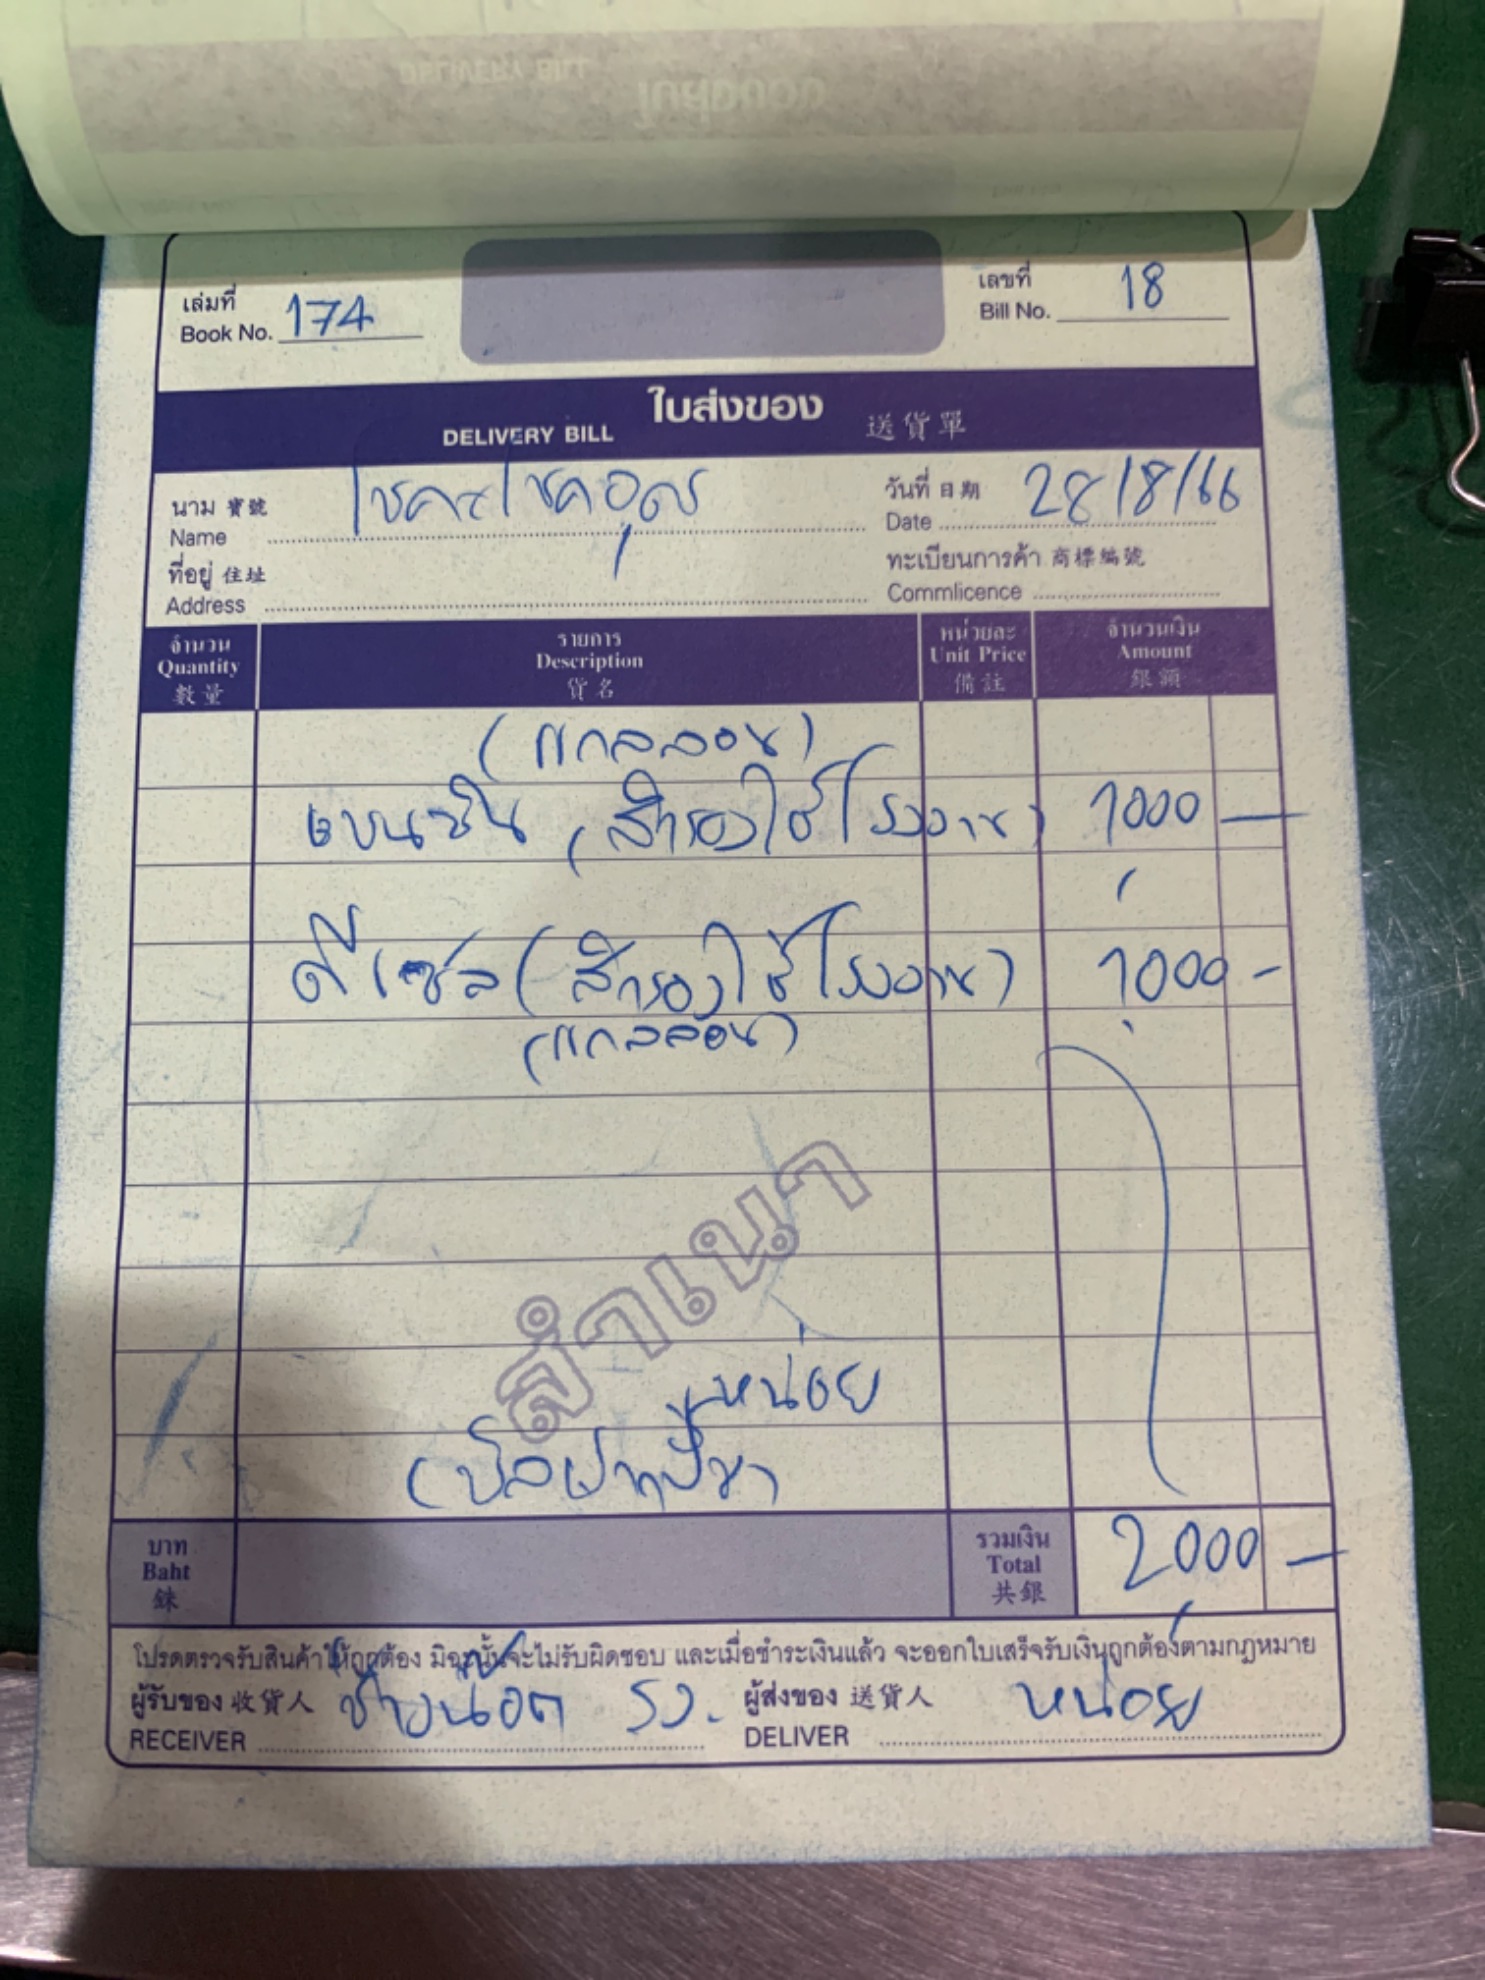 เล่มที่
Book No. 174
เลขที่
Bill No. 18
DELIVERY BILL ใบส่งของ 送貨單
นาม 寶號
Name
วันที่ 日期 28/8/66
Date
ที่อยู่ 住址
Address
ทะเบียนการค้า 商標編號
Commlicence
จำนวน
Quantity
數量
รายการ
Description
貨名
หน่วยละ
Unit Price
備註
จำนวนเงิน
Amount
銀額
(แกลลอน)
เบนซิน (สำรองใช้โรงงาน) 1000 —
ดีเซล (สำรองใช้โรงงาน) 1000 -
(แกลลอน)
สำเนา
หน่อย
บาท
Baht
銖
รวมเงิน
Total
共銀
2000 —
โปรดตรวจรับสินค้าให้ถูกต้อง มิฉะนั้นจะไม่รับผิดชอบ และเมื่อชำระเงินแล้ว จะออกใบเสร็จรับเงินถูกต้องตามกฎหมาย
ผู้รับของ 收貨人 ช่างน๊อต รง.
RECEIVER
ผู้ส่งของ 送貨人 หน่อย
DELIVER